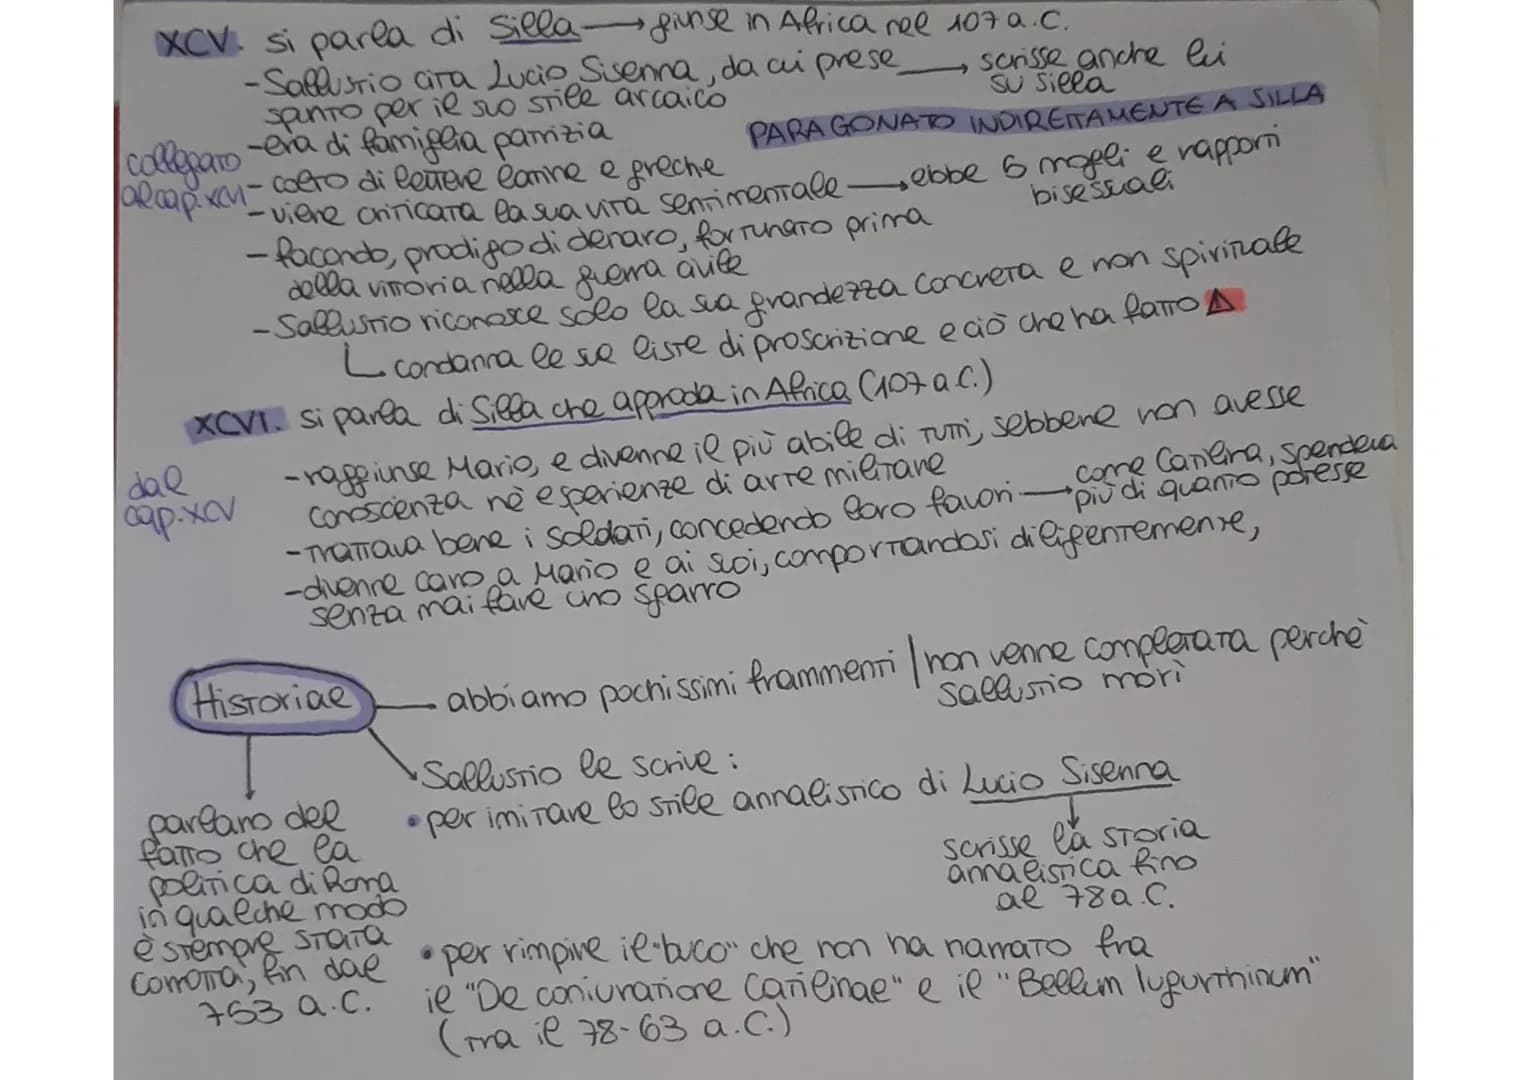 XCV. si parla di Silla → giunse in Africa nel 107 a.C.
- Sallustio cita Lucio Sisenna, da cui prese → scrisse anche lui
spunto per il suo stile arcaico
su Silla
- era di famiglia patrizia
PARAGONATO INDIRETTAMENTE A SILLA
collegato
al cap. XCVI
- colto di lettere latine e greche
- viene criticata la sua vita sentimentale → ebbe 5 mogli e rapporti
bisessuali
- facondo, prodigo di denaro, fortunato prima
della vittoria nella guerra civile
- Sallustio riconosce solo la sua grandezza concreta e non spirituale
↳ condanna le sue liste di proscrizione e ciò che ha fatto ⚠
XCVI. si parla di Silla che approda in Africa (107 a.C.)
dal
cap. XCV
- raggiunse Mario, e divenne il più abile di tutti, sebbene non avesse
conoscenza nè esperienze di arte militare
- trattava bene i soldati, concedendo loro favori → come Catilina, spendeva
più di quanto potesse
- divenne caro a Mario e ai suoi, comportandosi diligentemente,
senza mai fare uno sgarro
Historiae — abbiamo pochissimi frammenti / non venne completata perchè
Sallustio morì
Sallustio le scrive:
• per imitare lo stile annalistico di Lucio Sisenna
scrisse la storia
annalistica fino
al 78 a.C.
parlano del
fatto che la
politica di Roma
in qualche modo
è stempre stata
corrotta, fin dal
753 a.C.
• per rimpire il "buco" che non ha narrato fra
il "De coniuratione Catilinae" e il "Bellum Iugurthinum"
(tra il 78-63 a.C.)